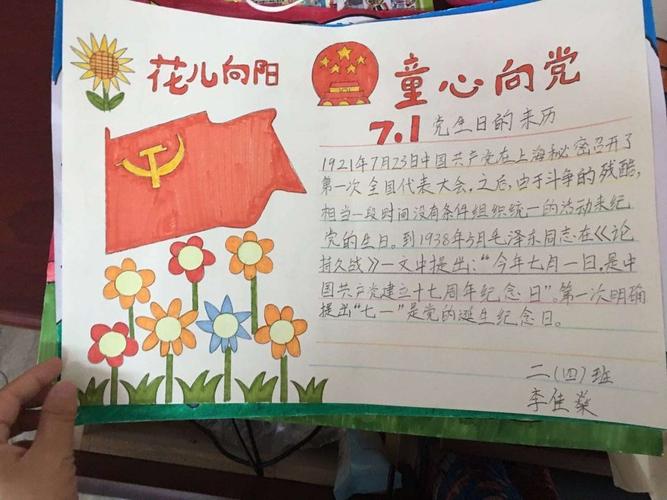 花儿向阳
童心向党
7.1 党生日的来历
1921年7月23日中国共产党在上海秘密召开了
第一次全国代表大会。之后,由于斗争的残酷,
相当一段时间没有条件组织统一的活动来纪
党的生日。到1938年5月毛泽东同志在《论
持久战》一文中提出:"今年七月一日,是中
国共产党建立十七周年纪念日"。第一次明确
提出"七一"是党的诞生纪念日。
二(四)班
李佳燊